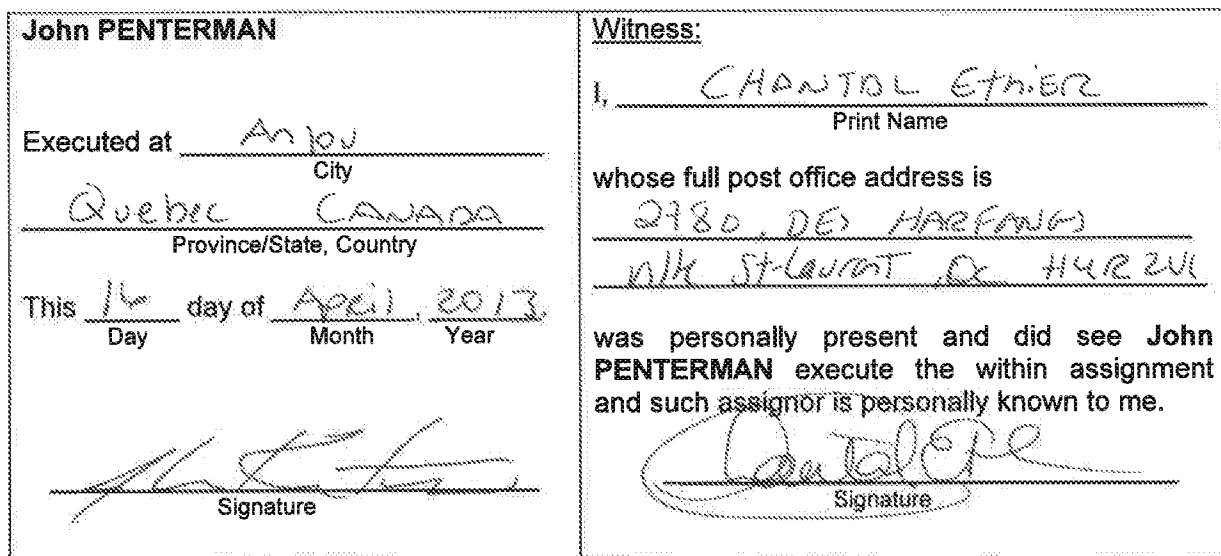 John PENTERMAN
Executed at Anjou
City
Quebec CANADA
Province/State, Country
This 16 day of April, 2013.
Day Month Year
Signature
Witness:
I, CHANTAL EthiER
Print Name
whose full post office address is
2780, DES HARFANGS
St-Laurent Qc H4R 2V6
was personally present and did see John
PENTERMAN execute the within assignment
and such assignor is personally known to me.
Signature